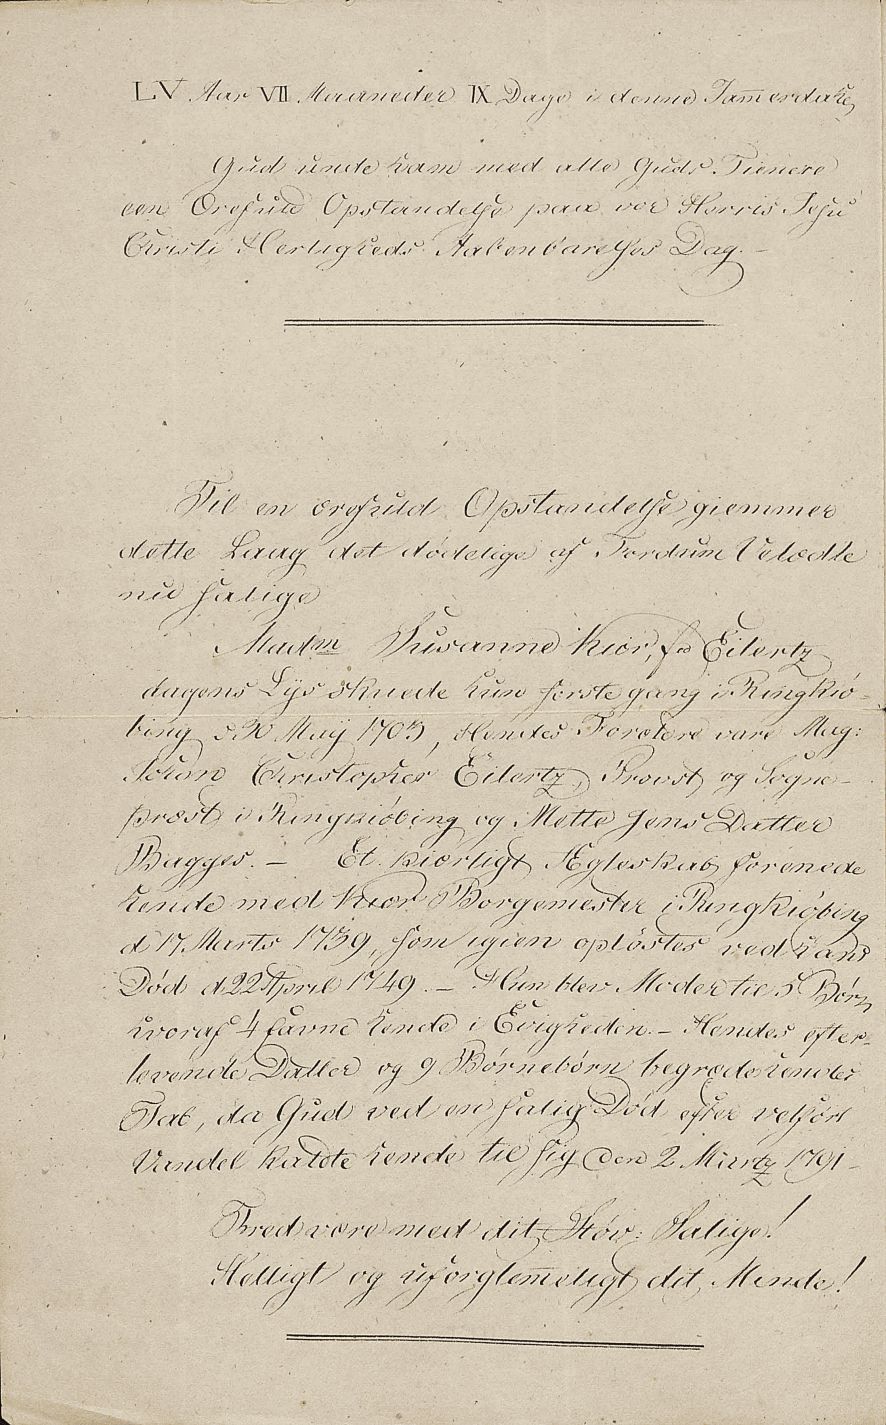 LV Aar VII Maaneder IX Dage i denne Jam̄erdahl
Gud unde ham med alle Guds Tienere
een Ærefuld Opstandelse paa vor Herris Jesu
Christi Herligheds Aabenbarelses Dag. –
Til en ærefuld Opstandelse giemmer
dette Laag det dødelige af Fordum Velædle
nu salige
Madm Susanne Kiær, fd Eilertz
dagens Lys skuede hun første gang i Ringkiø-
bing d 30 Maÿ 1703, Hendes Forældre vare Mag:
Johan Christopher Eilertz, Provst og Sogne-
præst i Ringkiøbing og Mette Jens Datter
Bagges. – Et kiærligt Ægteskab forenede
hende med Kiær Borgemester i Ringkiøbing
d 17 Marts 1739, som igien opløstes ved hans
Død d 22 April 1749. – Hun blev Moder til 5 Børn
hvoraf 4 favne hende i Evigheden. – Hendes efter-
levende Datter og 9 Børnebørn begræde hendes
Tab, da Gud ved en salig Død efter velført
Vandel kaldte hende til sig den 2 Martz 1791 –
Fred være med dit Støv, Salige!
Helligt og uforglem̄eligt dit Minde!